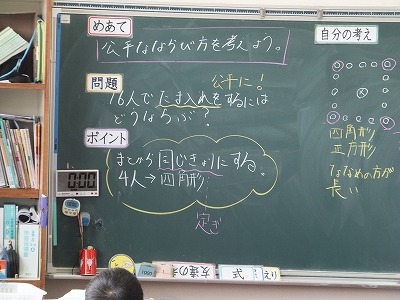 めあて
公平なならび方を考えよう。
問題
公平に！
16人でたま入れをするには
どうならぶ？
ポイント
まとから同じきょりにする。
4人→四角形
定ぎ
自分の考え
四角形
正方形
ななめの方が
長い
0:00
式